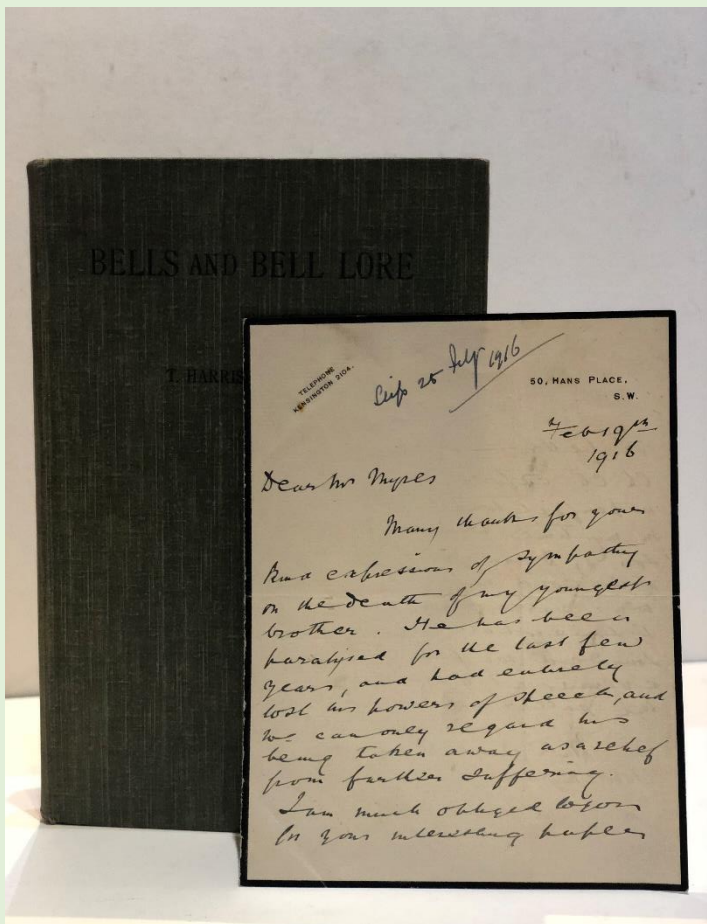 BELLS AND BELL LORE
T. HARRIS
TELEPHONE
KENSINGTON 2104.
25 Feby 1916
50, HANS PLACE,
S.W.
Feb 19th
1916
Dear Mr Myres
Many thanks for your
kind expressions of sympathy
on the death of my youngest
brother. He has been
paralysed for the last few
years, and had entirely
lost his powers of speech, and
we can only regard his
being taken away as a relief
from further suffering.
I am much obliged to you
for your interesting papers